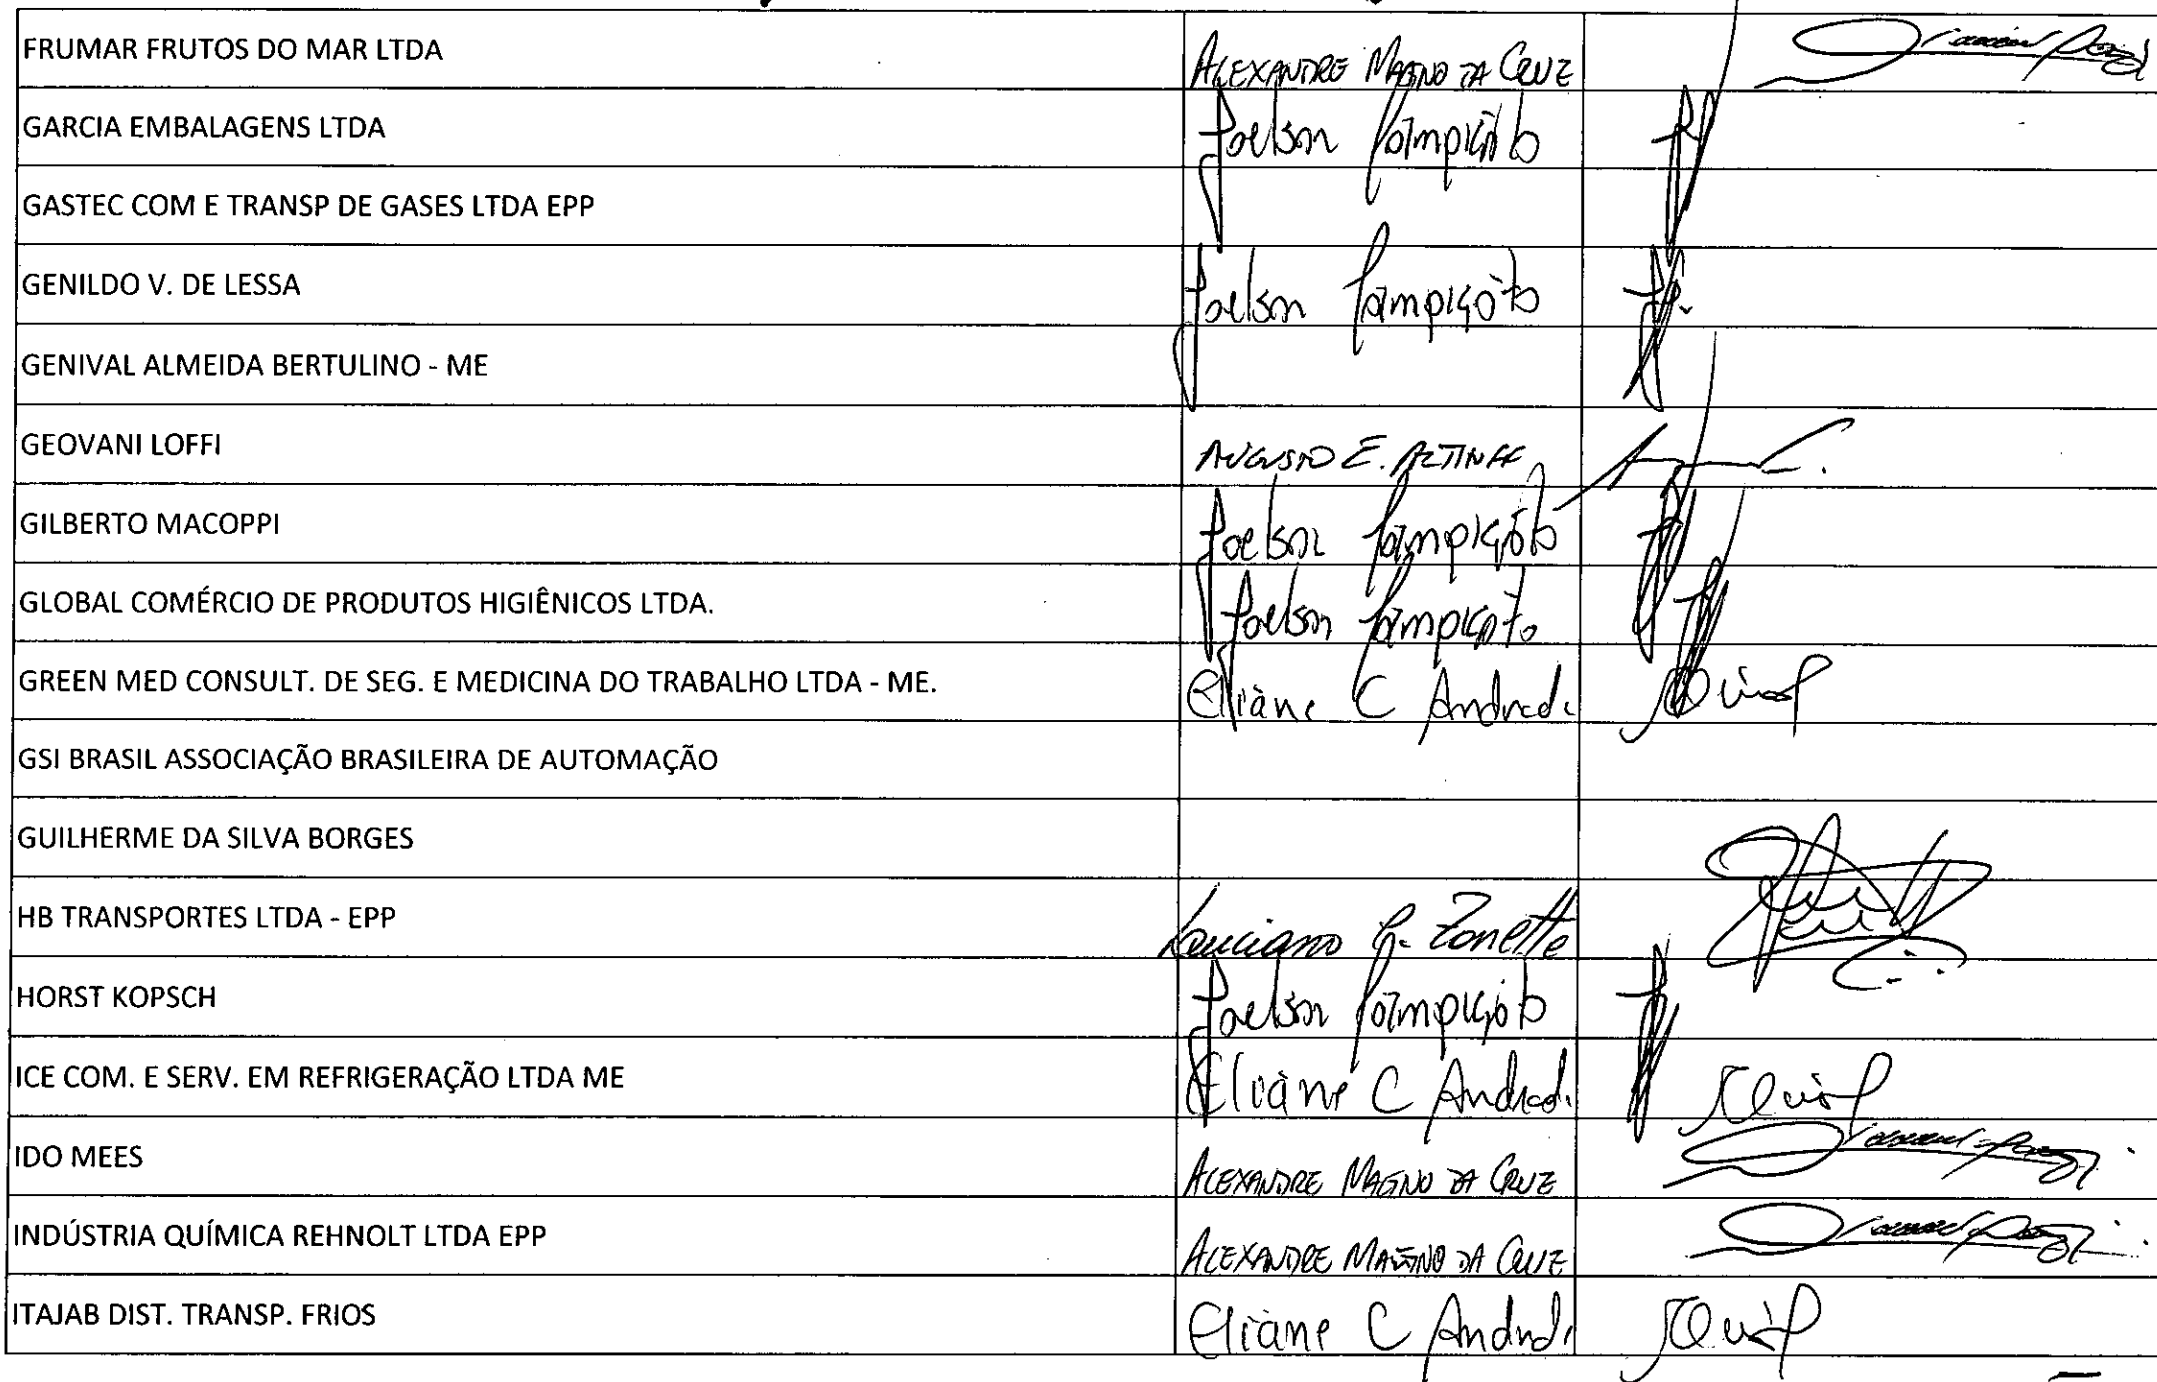 FRUMAR FRUTOS DO MAR LTDA ALEXANDRE MAGNO DA CRUZ
GARCIA EMBALAGENS LTDA Joelson
GASTEC COM E TRANSP DE GASES LTDA EPP
GENILDO V. DE LESSA Joelson
GENIVAL ALMEIDA BERTULINO - ME
GEOVANI LOFFI AUGUSTO E.
GILBERTO MACOPPI Joelson
GLOBAL COMÉRCIO DE PRODUTOS HIGIÊNICOS LTDA. Joelson
GREEN MED CONSULT. DE SEG. E MEDICINA DO TRABALHO LTDA - ME. Eliane C Andrade
GSI BRASIL ASSOCIAÇÃO BRASILEIRA DE AUTOMAÇÃO
GUILHERME DA SILVA BORGES
HB TRANSPORTES LTDA - EPP Luciano G. Zonette
HORST KOPSCH Joelson
ICE COM. E SERV. EM REFRIGERAÇÃO LTDA ME Eliane C Andrade
IDO MEES ALEXANDRE MAGNO DA CRUZ
INDÚSTRIA QUÍMICA REHNOLT LTDA EPP ALEXANDRE MAGNO DA CRUZ
ITAJAB DIST. TRANSP. FRIOS Eliane C Andrade